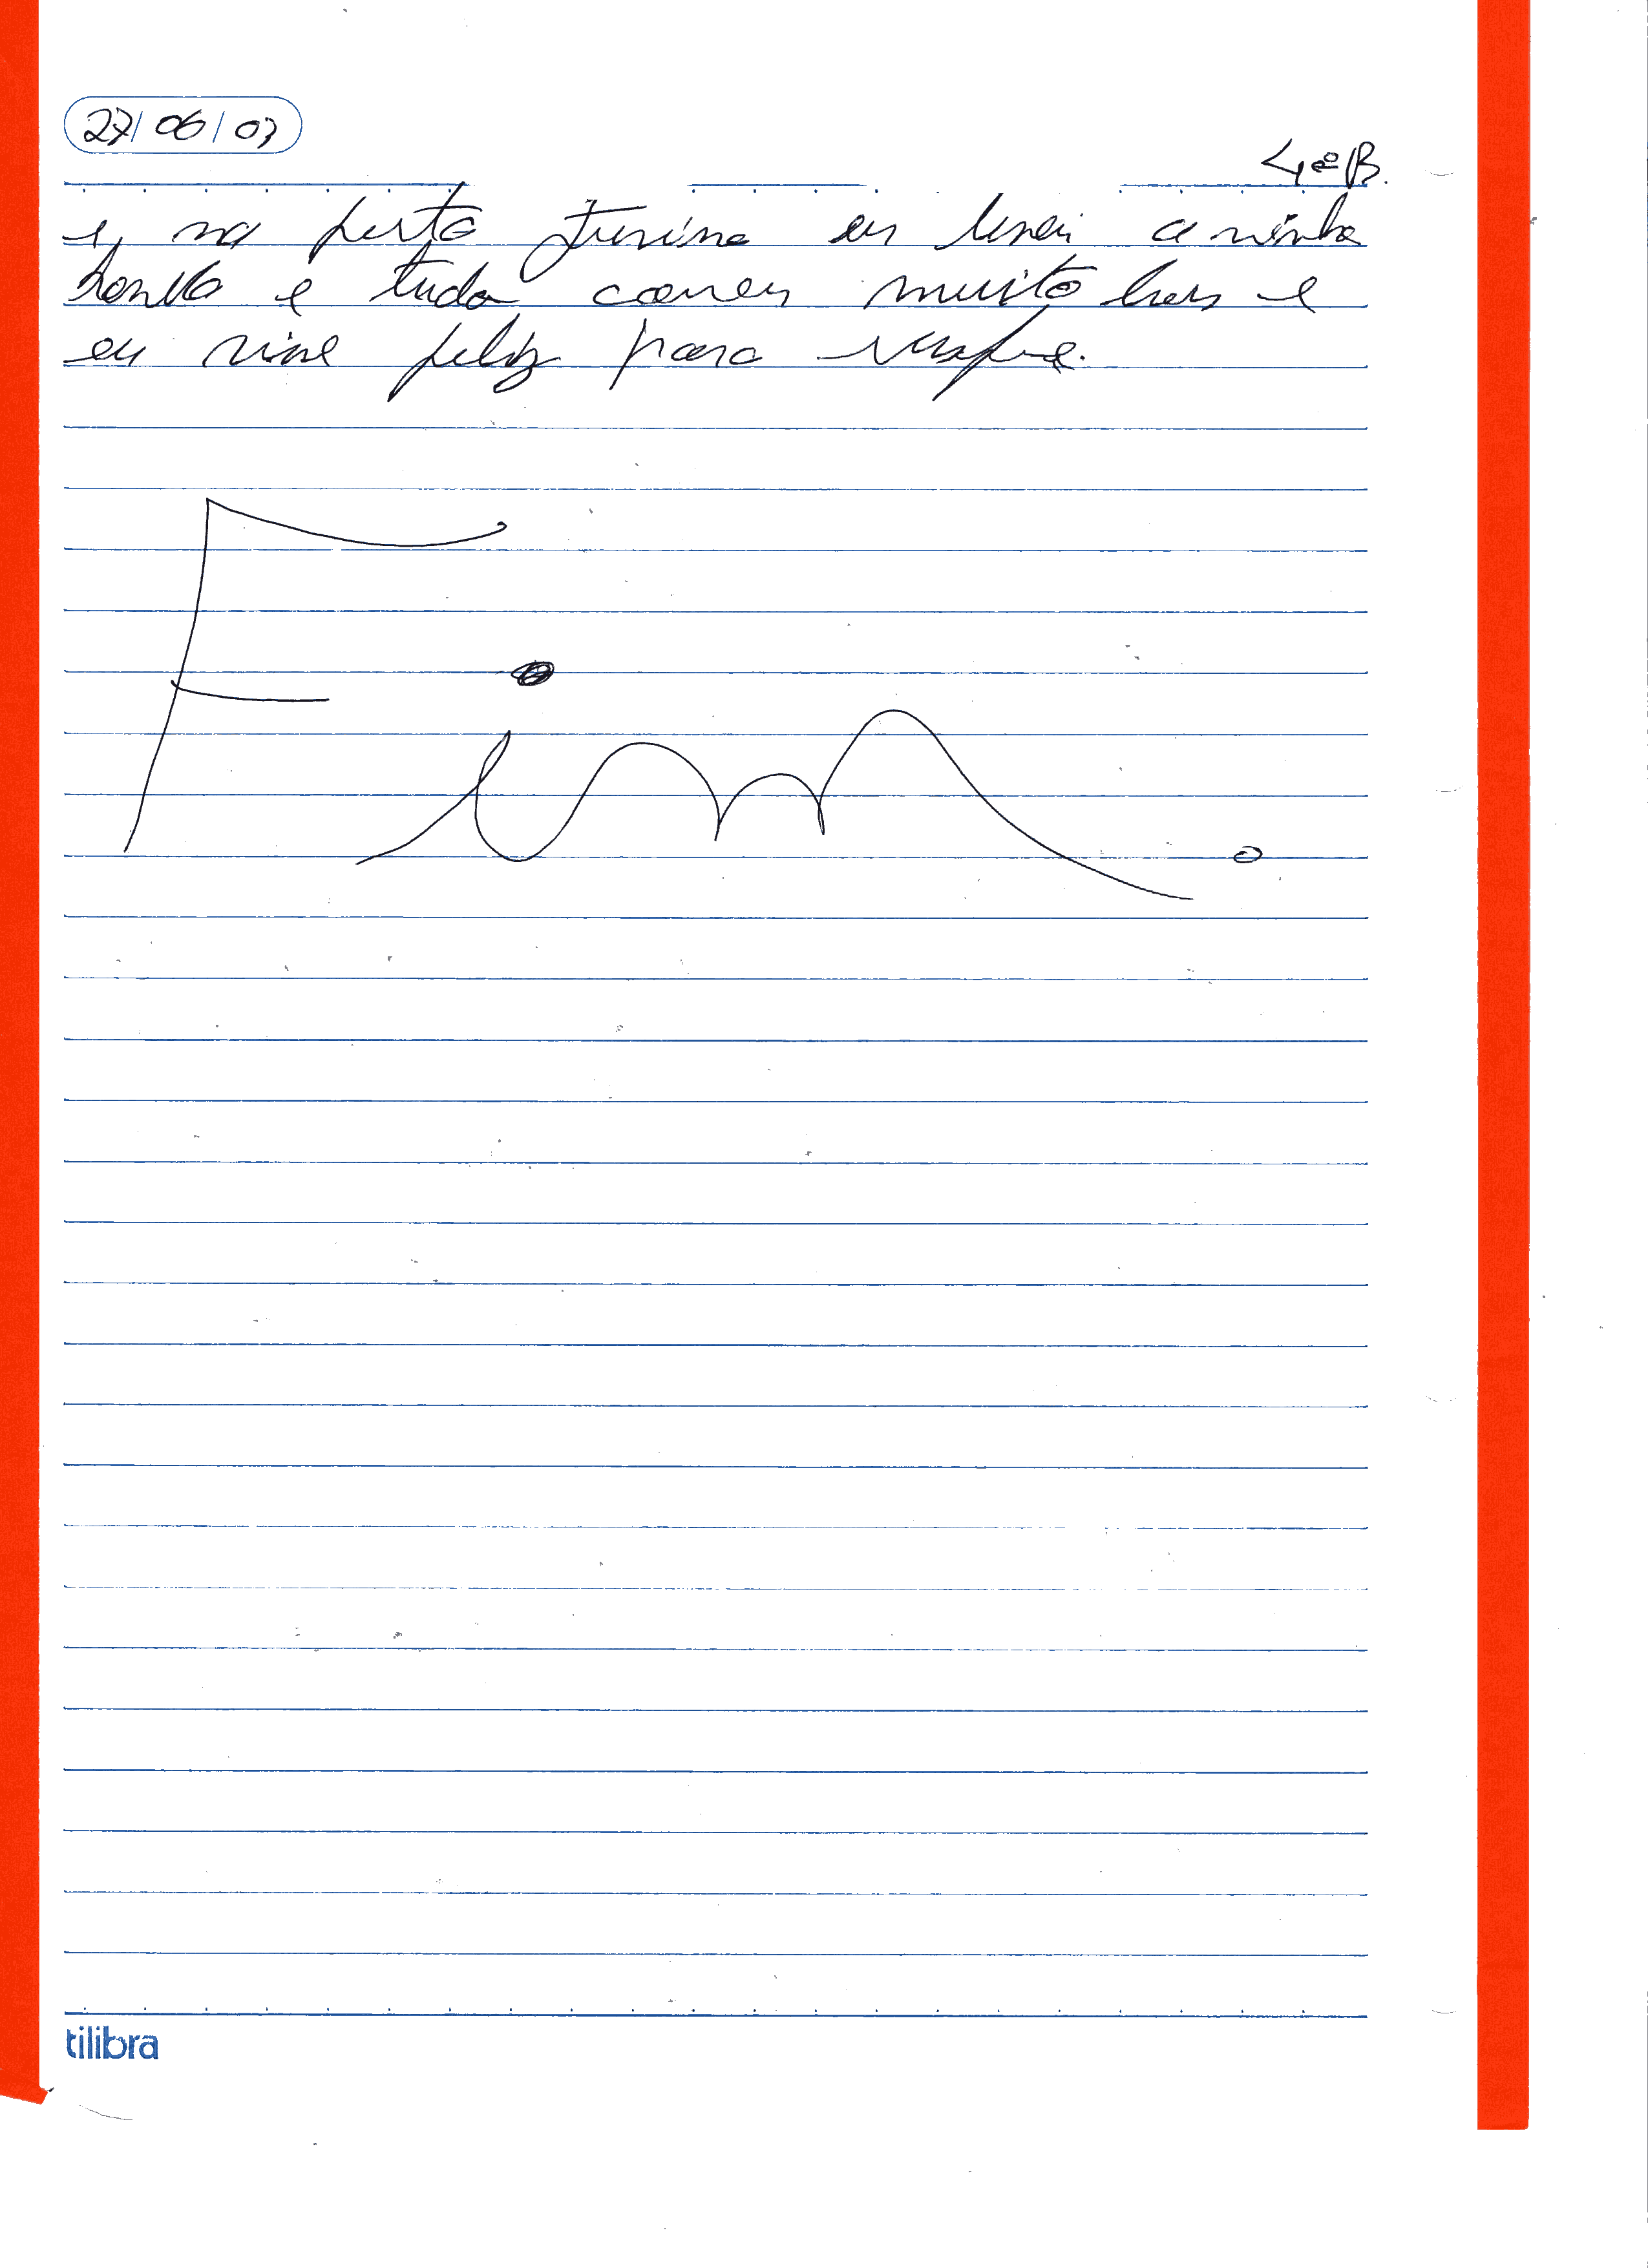 27/06/03
4ªB.
e, na festa junina eu levei a minha
bonita e tudo correu muito bem e
eu vive feliz para sempre.
Fim.
tilibra